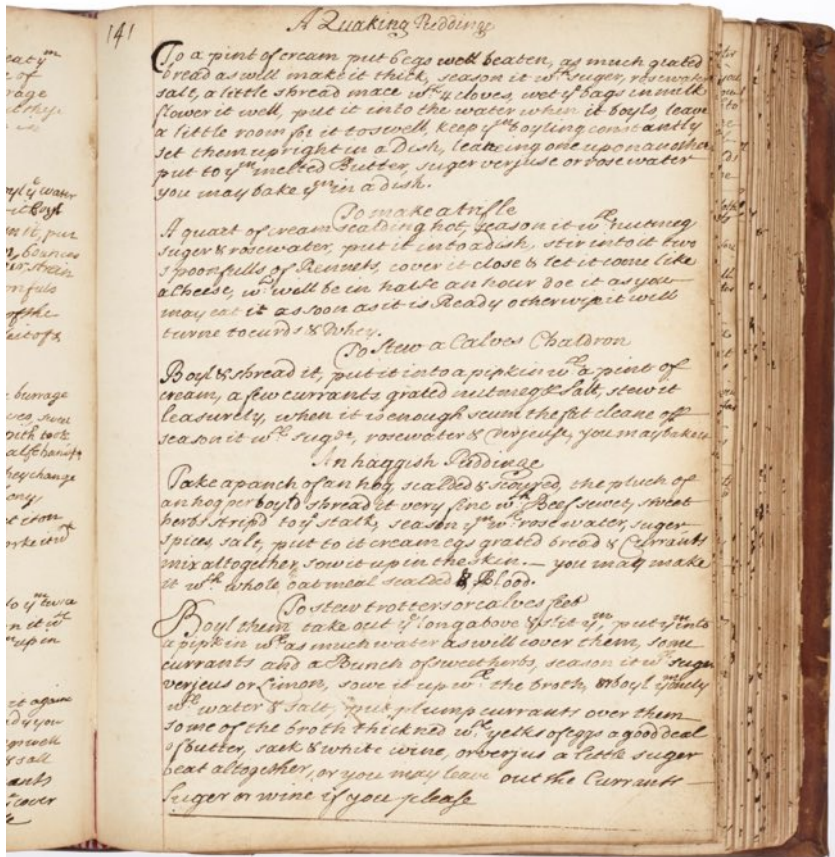 141
A Quaking Puddinge
To a pint of cream put 6 egs well beaten, as much grated
bread as will make it thick, season it wth suger, rosewater
salt, a little shread mace wth 4 cloves, wet ye bags in milk
flower it well, put it into the water when it boyls, leave
a little room for it to swell, keep ym boyling constantly
set them upright in a Dish, leaneing one upon another
put to ym melted Butter, suger verjuse or rosewater
you may bake ym in a dish.
To make a trifle
A quart of cream scalding hot, season it wth nutmeg
suger & rosewater, put it into a dish, stir into it two
spoonfulls of Rennets, cover it close & let it come like
a Cheese, wch will be in halfe an hour doe it as you
may eat it as soon as it is Ready otherwise it will
turne to curds & Whey.
To Stew a Calves Chaldron
Boyl & shread it, put it into a pipkin wth a pint of
cream, a few currants, grated nutmeg & Salt, stew it
leasurely, when it is enough scum the fat cleane off
season it wth suger, rosewater & Verjeuse, you may bake it
An haggish Puddinge
Take a panch of an hog, scalded & scoured, the pluck of
an hog perboyld shread it very fine wth Beef sewet, sweet
herbs stripd to ye stalk, season ym wth rosewater, suger
spices, salt, put to it cream egs grated bread & Currants
mix altogether, sow it up in the skin. — you may make
it wth whole oatmeal scalded & Blood.
To stew trotters or calves feet
Boyl them take out ye long above & slit ym, put ym into
a pipkin wth as much water as will cover them, some
currants and a Bunch of sweetherbs, season it wth suger
verjeus or Limon, sowe it up wth the broth, & boyl ym only
wth water & salt, put plump currants over them
some of the broth thickned wth yelks of eggs a good deal
of butter, sack & white wine, or verjus a little suger
beat altogether, or you may leave out the Currants
Suger or wine if you please